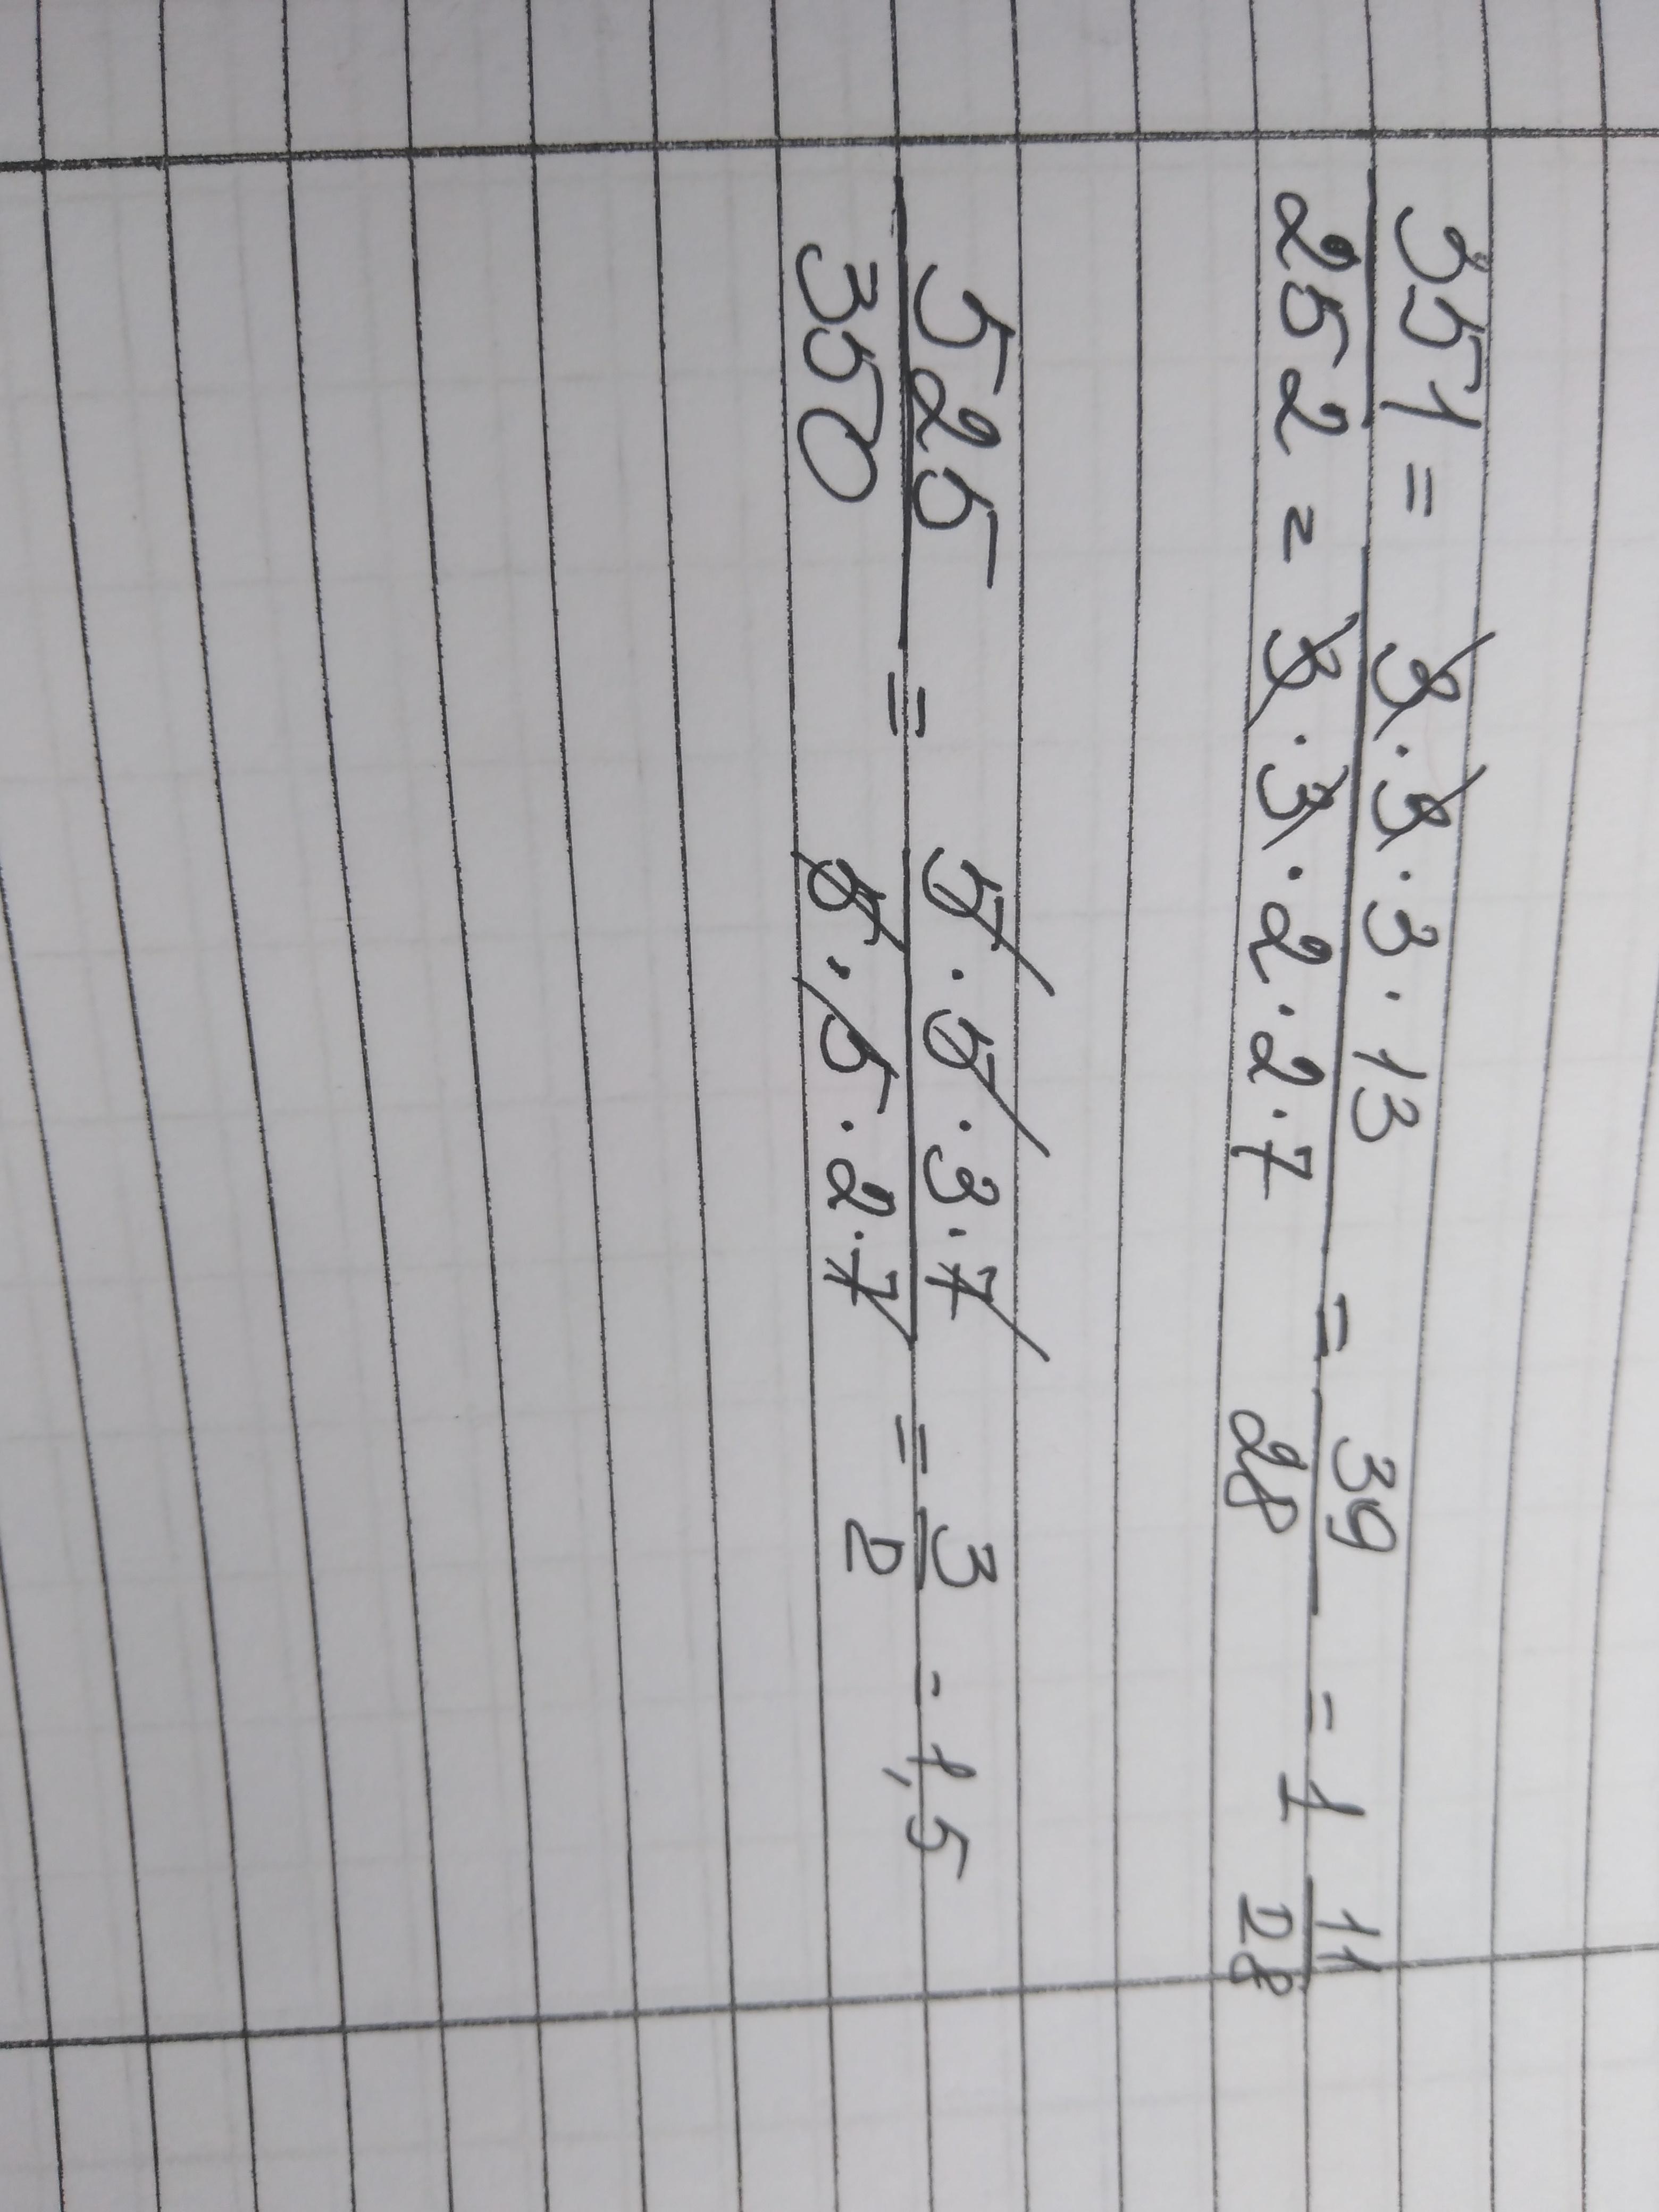 351/252 = (3·3·3·13)/(3·3·2·2·7) = 39/28 = 1 11/28
525/350 = (5·5·3·7)/(5·5·2·7) = 3/2 - 1,5